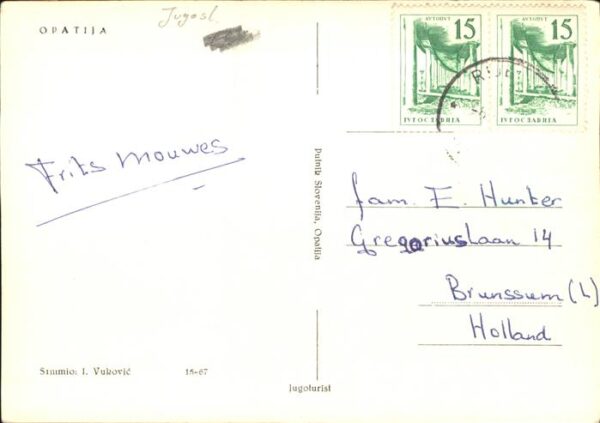 Jugosl.
OPATIJA
15
AUTOPUT
JUGOSLAVIJA
15
AUTOPUT
JUGOSLAVIJA
Frits Mouwes
Putnik Slovenija, Opatija
fam. E. Hunter
Gregoriuslaan 14
Brunssum (L)
Holland
Snimio: I. Vuković 15-67
Jugoturist